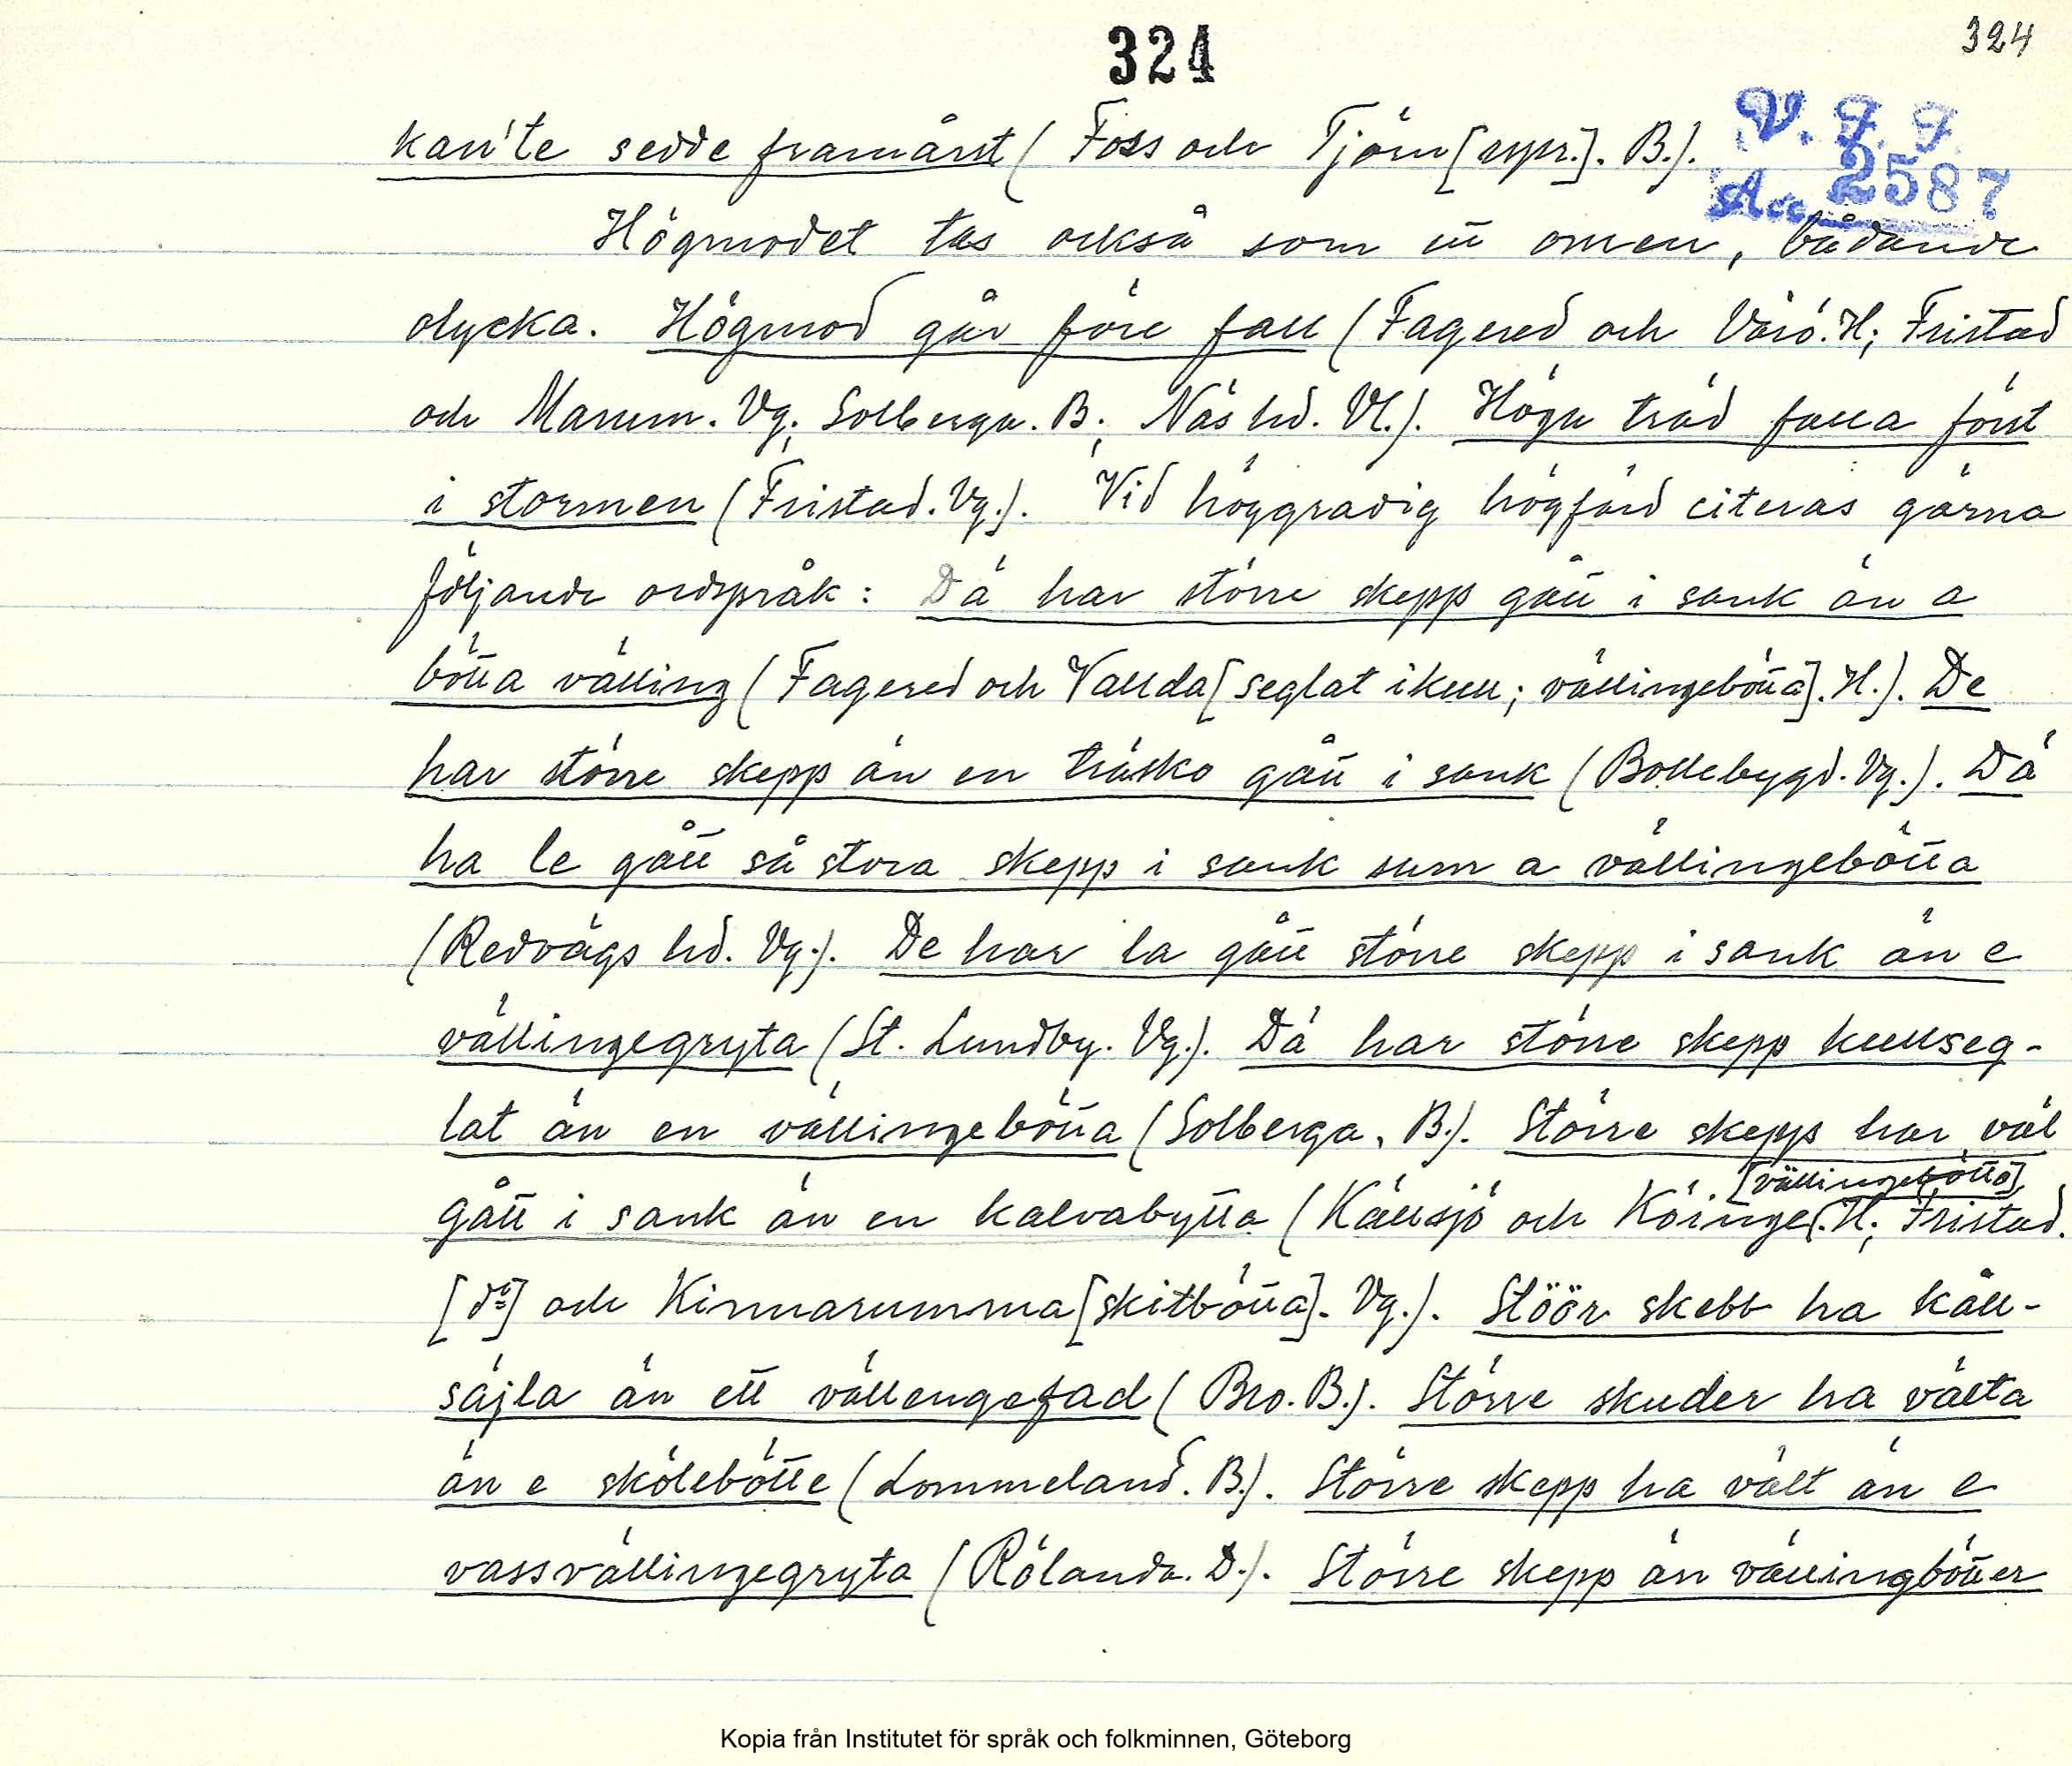 324
324
V. F. F.
Acc 2587
kan'te sedde framåst (Foss och Tjörn [uppr.]. B.).
Högmodet tas också som ett omen, bådande
olycka. Högmod går före fall (Fagered och Värö. H; Fristad
och Marum. Vg; Solberga. B; Näs hd. Vl.). Höga träd falla först
i stormen (Fristad. Vg.). Vid höggradig högfärd citeras gärna
följande ordspråk: Dä har större skepp gått i sank än a
bötta välling (Fagered och Vallda [seglat ikull; vällingebötta]. H.). De
har större skepp än en träsko gått i sank (Bollebygd. Vg.). Dä
ha le gått så stora skepp i sank sum a vällingebötta
(Redvägs hd. Vg.). De har la gått större skepp i sank än e
vällingegryta (St. Lundby. Vg.). Dä har större skepp kullseg-
lat än en vällingebötta (Solberga. B.). Större skepp har väl
gått i sank än en kalvabytta (Källsjö och Köinge [vällingebötta]. H; Fristad.
[do] och Kinnarumma [skitbötta]. Vg.). Stöör skebb ha kåll-
säjla än ett vällengefad (Bro. B.). Större skuder ha välta
än e skölebötte (Lommeland. B.). Större skepp ha vält än e
vassvällingegryta (Rölanda. D.). Större skepp än vällingbötter
Kopia från Institutet för språk och folkminnen, Göteborg